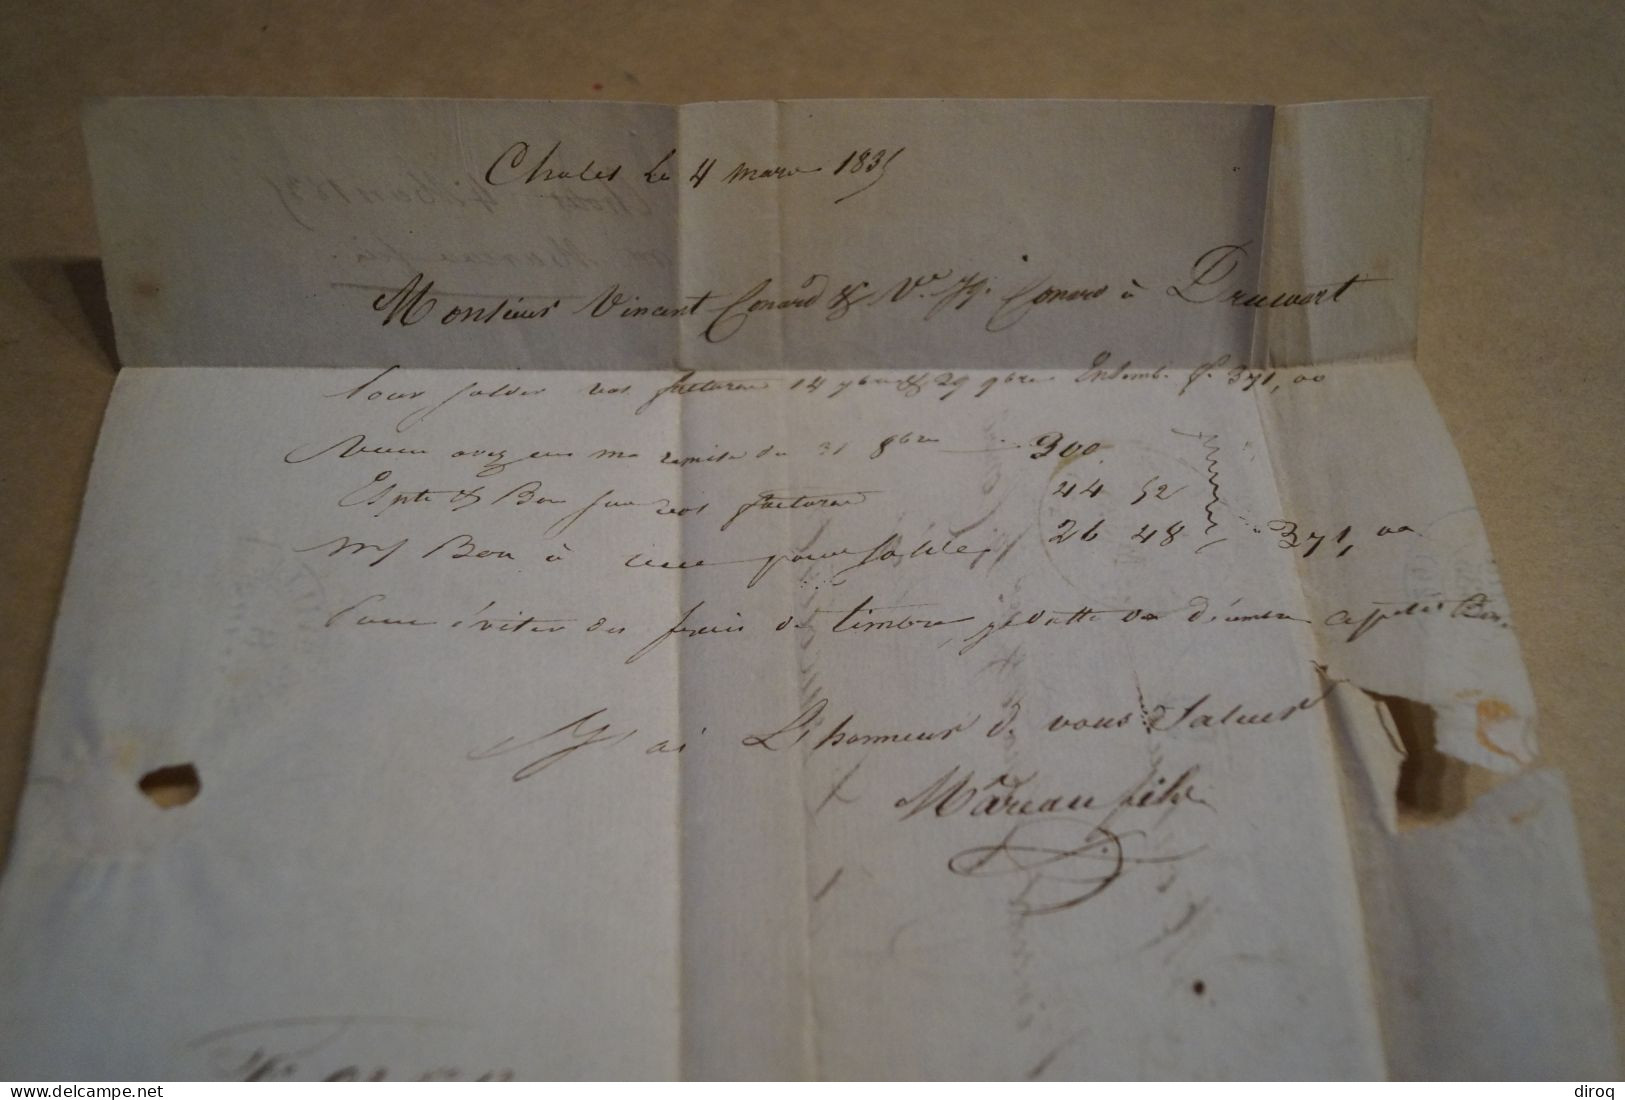 le 4 mars 1835
Monsieur Vincent Conard & Ve Conard à
Pour solder vos factures 14 7bre & 29 9bre Ensemble f. 371,00
Vous avez eu ma remise du 31 8bre 300
Espte & Bon sur vos factures 44 52
Mf Bon à vue pour solde 26 48 371,00
Pour éviter des frais de timbre, de
J'ai L'honneur de vous Saluer
Mareau fils
delcampe.net
diroq